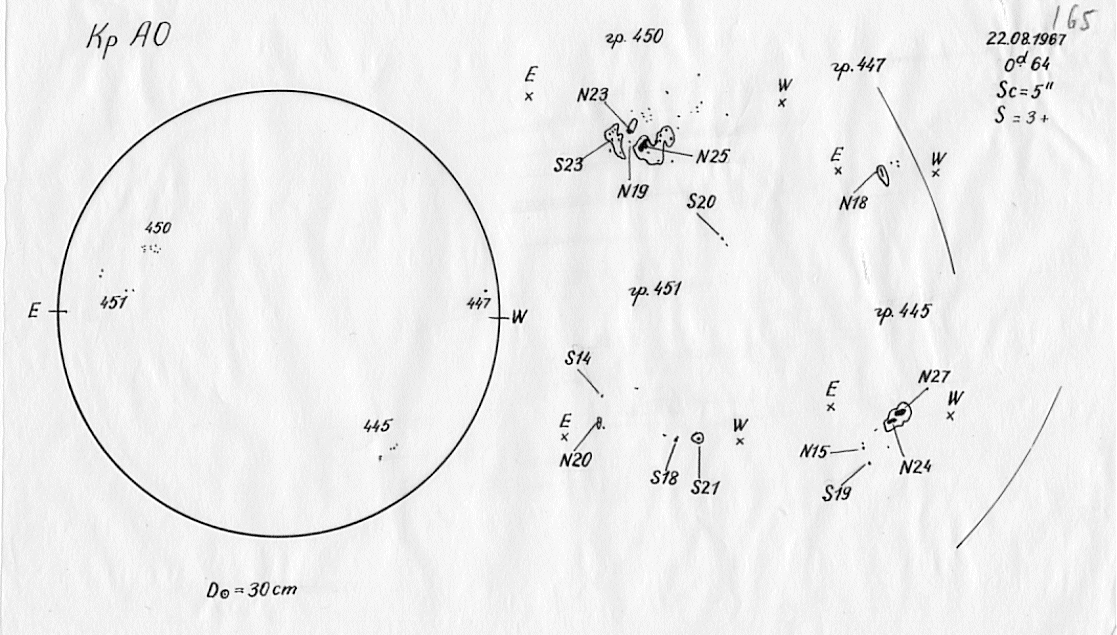 Кр АО
165
22.08.1967
0ᵈ64
Sc = 5"
S = 3+
450
451
447
445
E
W
D⊙ = 30 cm
гр. 450
E
W
N23
S23
N25
N19
S20
гр. 447
E
W
N18
гр. 451
S14
E
W
N20
S18
S21
гр. 445
N27
E
W
N15
N24
S19